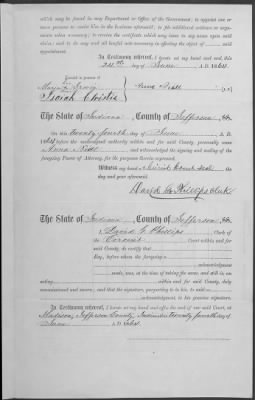 which may be found in any Department or Office of the Government; to appoint one or
more persons to make him the best endeavors, to file additional evidence or argu-
ments when necessary; to receive the certificate which may issue to my name upon said
claim; and to do any and all lawful acts necessary to effecting the object of said
appointment.
In Testimony whereof, I hereto set my hand and seal, this
24th day of June A.D. 1864
Signed in presence of
Anna
Isaiah Christie
The State of Indiana, County of Jefferson, ss.
On this twenty fourth day of June A.D.
1864 the undersigned authorized within and for said County, personally came
Anna and acknowledged the signing and sealing of the
foregoing Power of Attorney, for the purposes therein expressed.
Witness my hand & Circuit Court Seal the
day and year aforesaid.
David G. Phillips Clerk
The State of Indiana, County of Jefferson, ss.
I David G. Phillips Clerk of
the Circuit Court within and for
said County, do certify that
Esq., before whom the foregoing
acknowledgment
made, was, at the time of taking the same, and still is, an
acting within and for said County, duly
commissioned and sworn; and that the signature, purporting to be his, to said
acknowledgment, is his genuine signature.
In Testimony whereof, I set my hand and affix the seal of our said Court, at
Madison, Jefferson County, Indiana twenty fourth day of
June A.D. 1864.